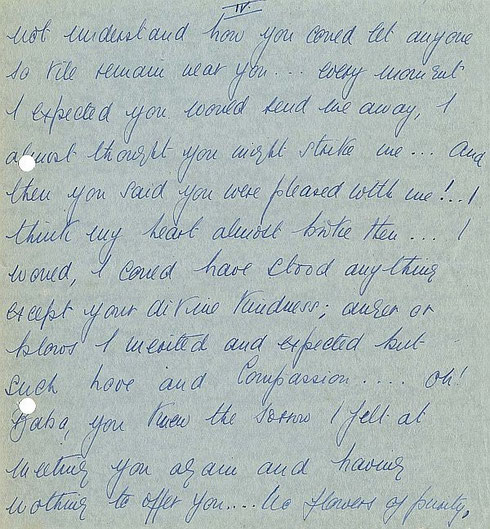 IV.
not understand how you could let anyone
so vile remain near you... every moment
I expected you would send me away, I
almost thought you might strike me... and
then you said you were pleased with me!.. I
think my heart almost broke then.... I
would, I could have stood anything
except your divine kindness; anger or
blows I merited and expected but
such love and Compassion.... oh!
Baba, you knew the sorrow I felt at
meeting you again and having
nothing to offer you.... no flowers of purity,